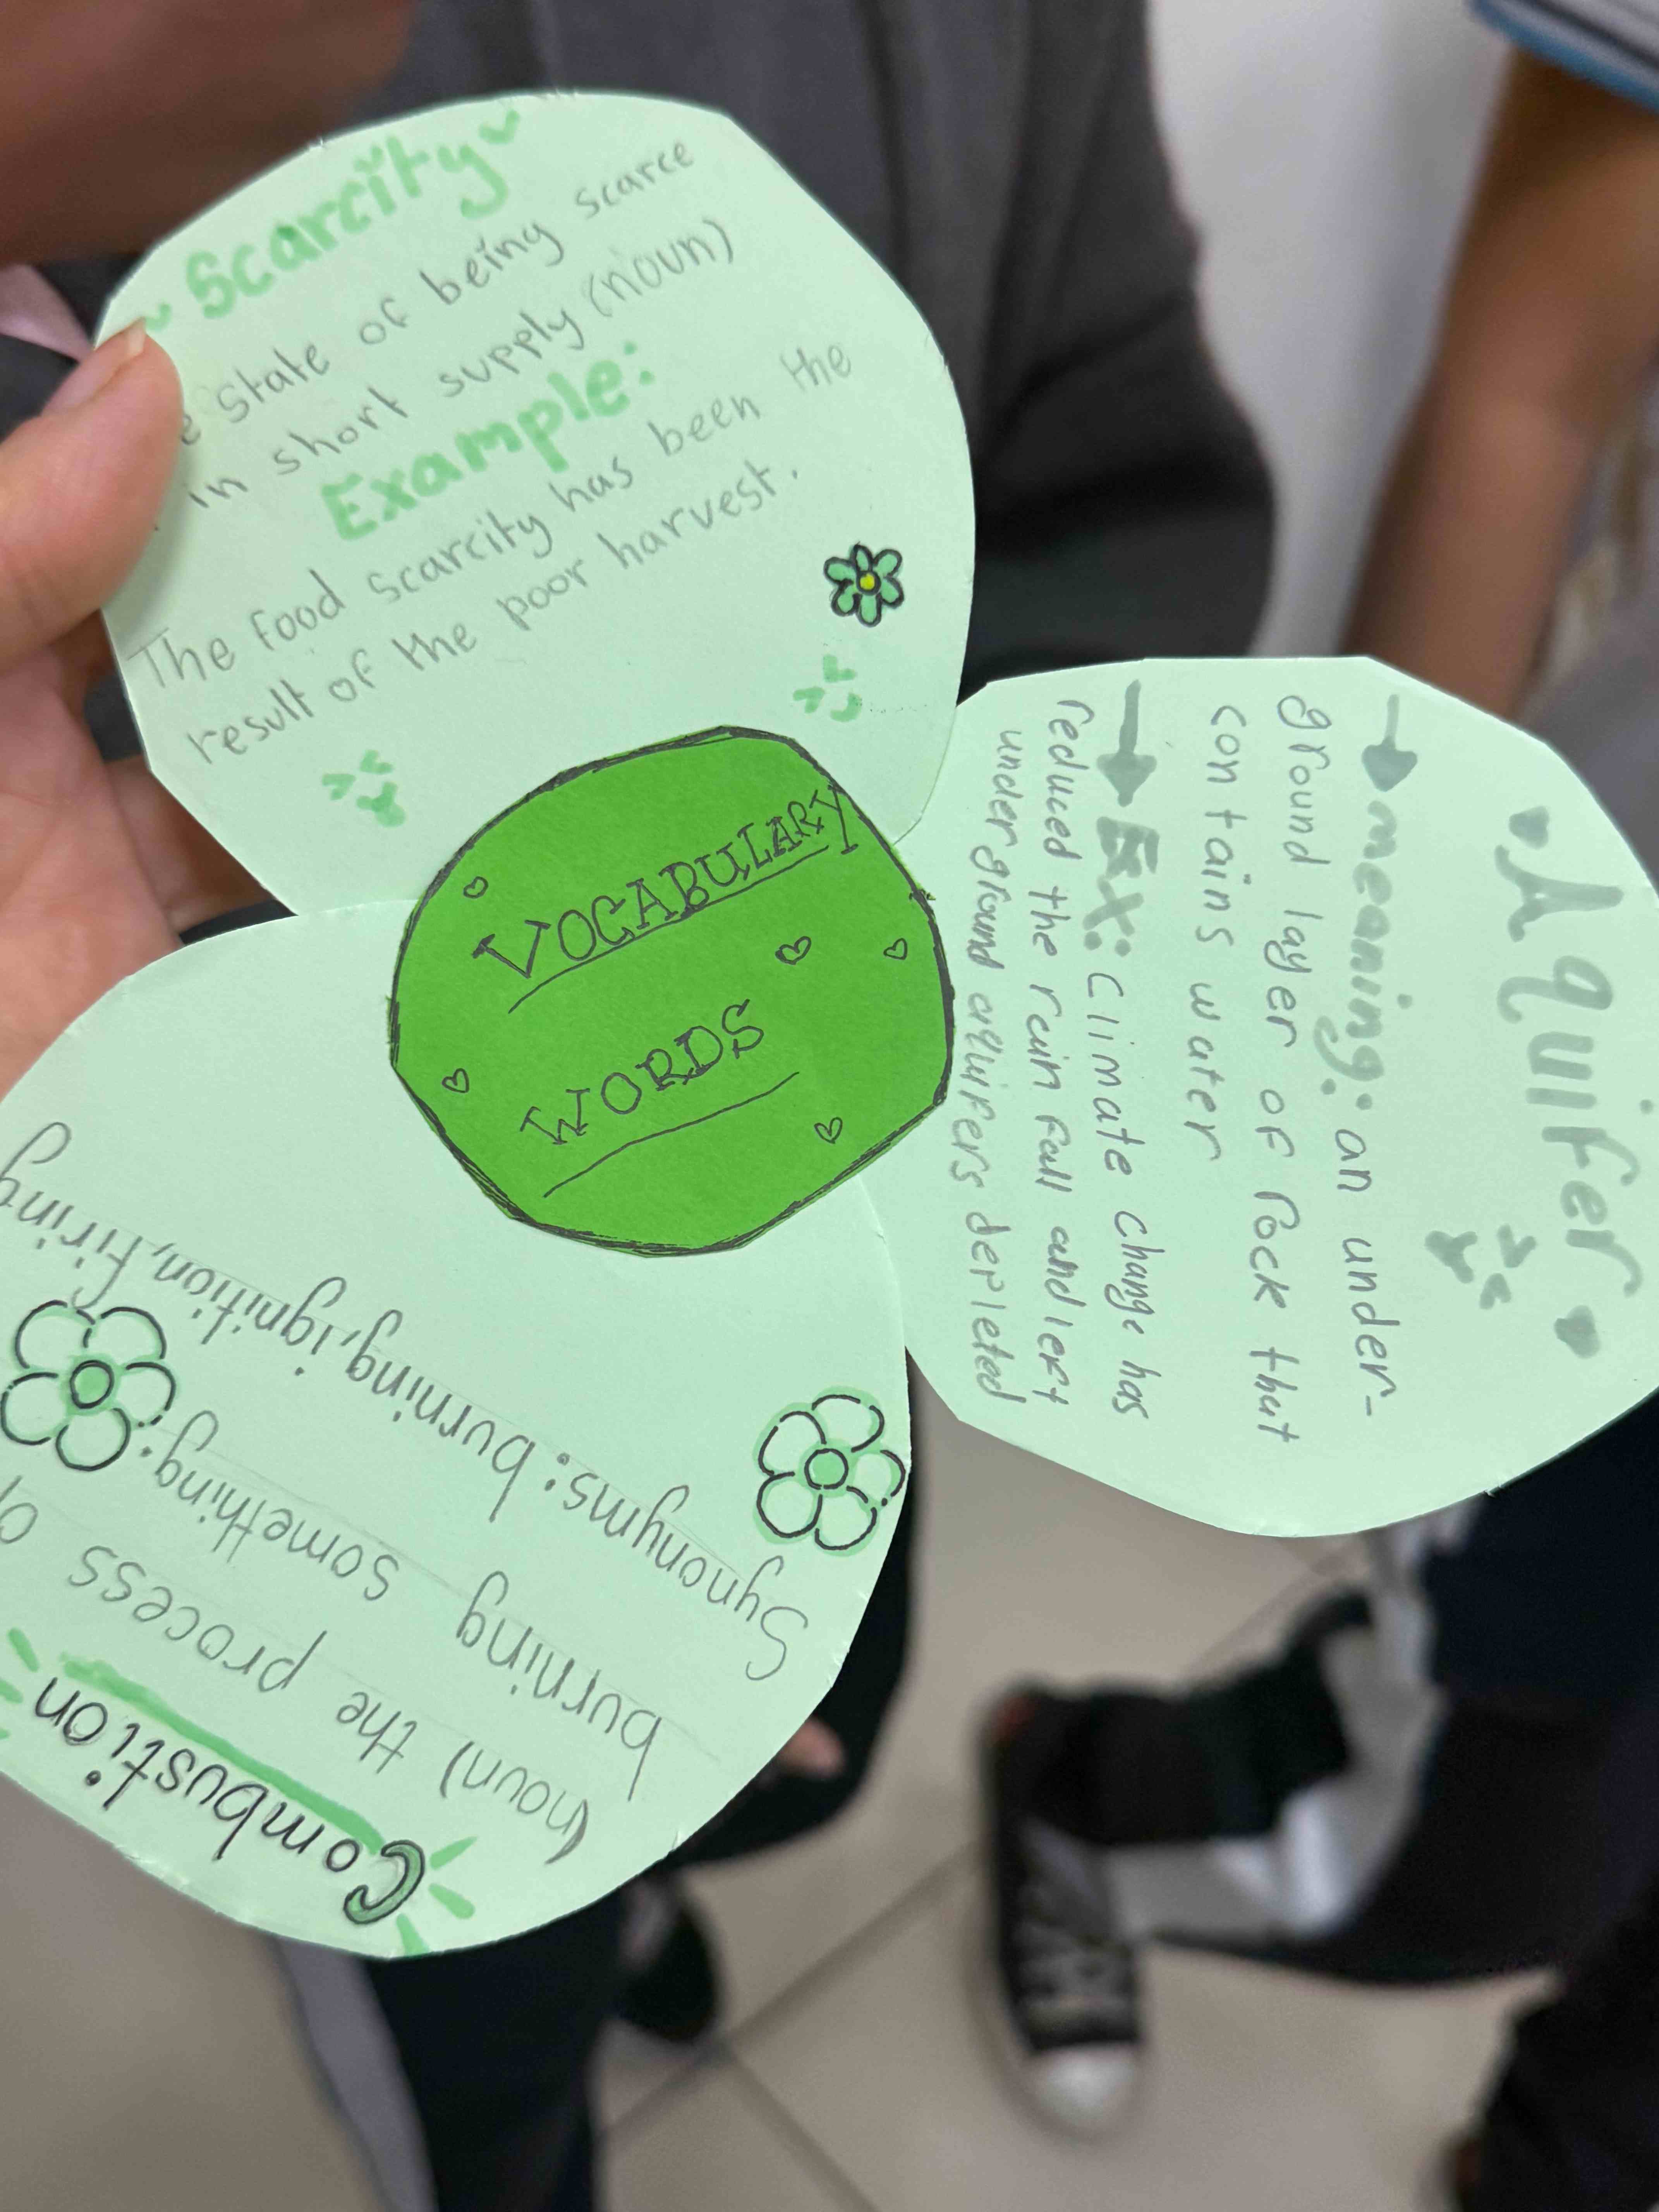 VOCABULARY
WORDS
Scarcity
state of being scarce
in short supply (noun)
Example:
The food scarcity has been the
result of the poor harvest.
Aquifer
meaning: an under-
ground layer of rock that
contains water
Ex: Climate change has
reduced the rain fall and left
underground aquifers depleted
Combustion
(noun) the process
burning something.
Synonyms: burning, ignition, firing